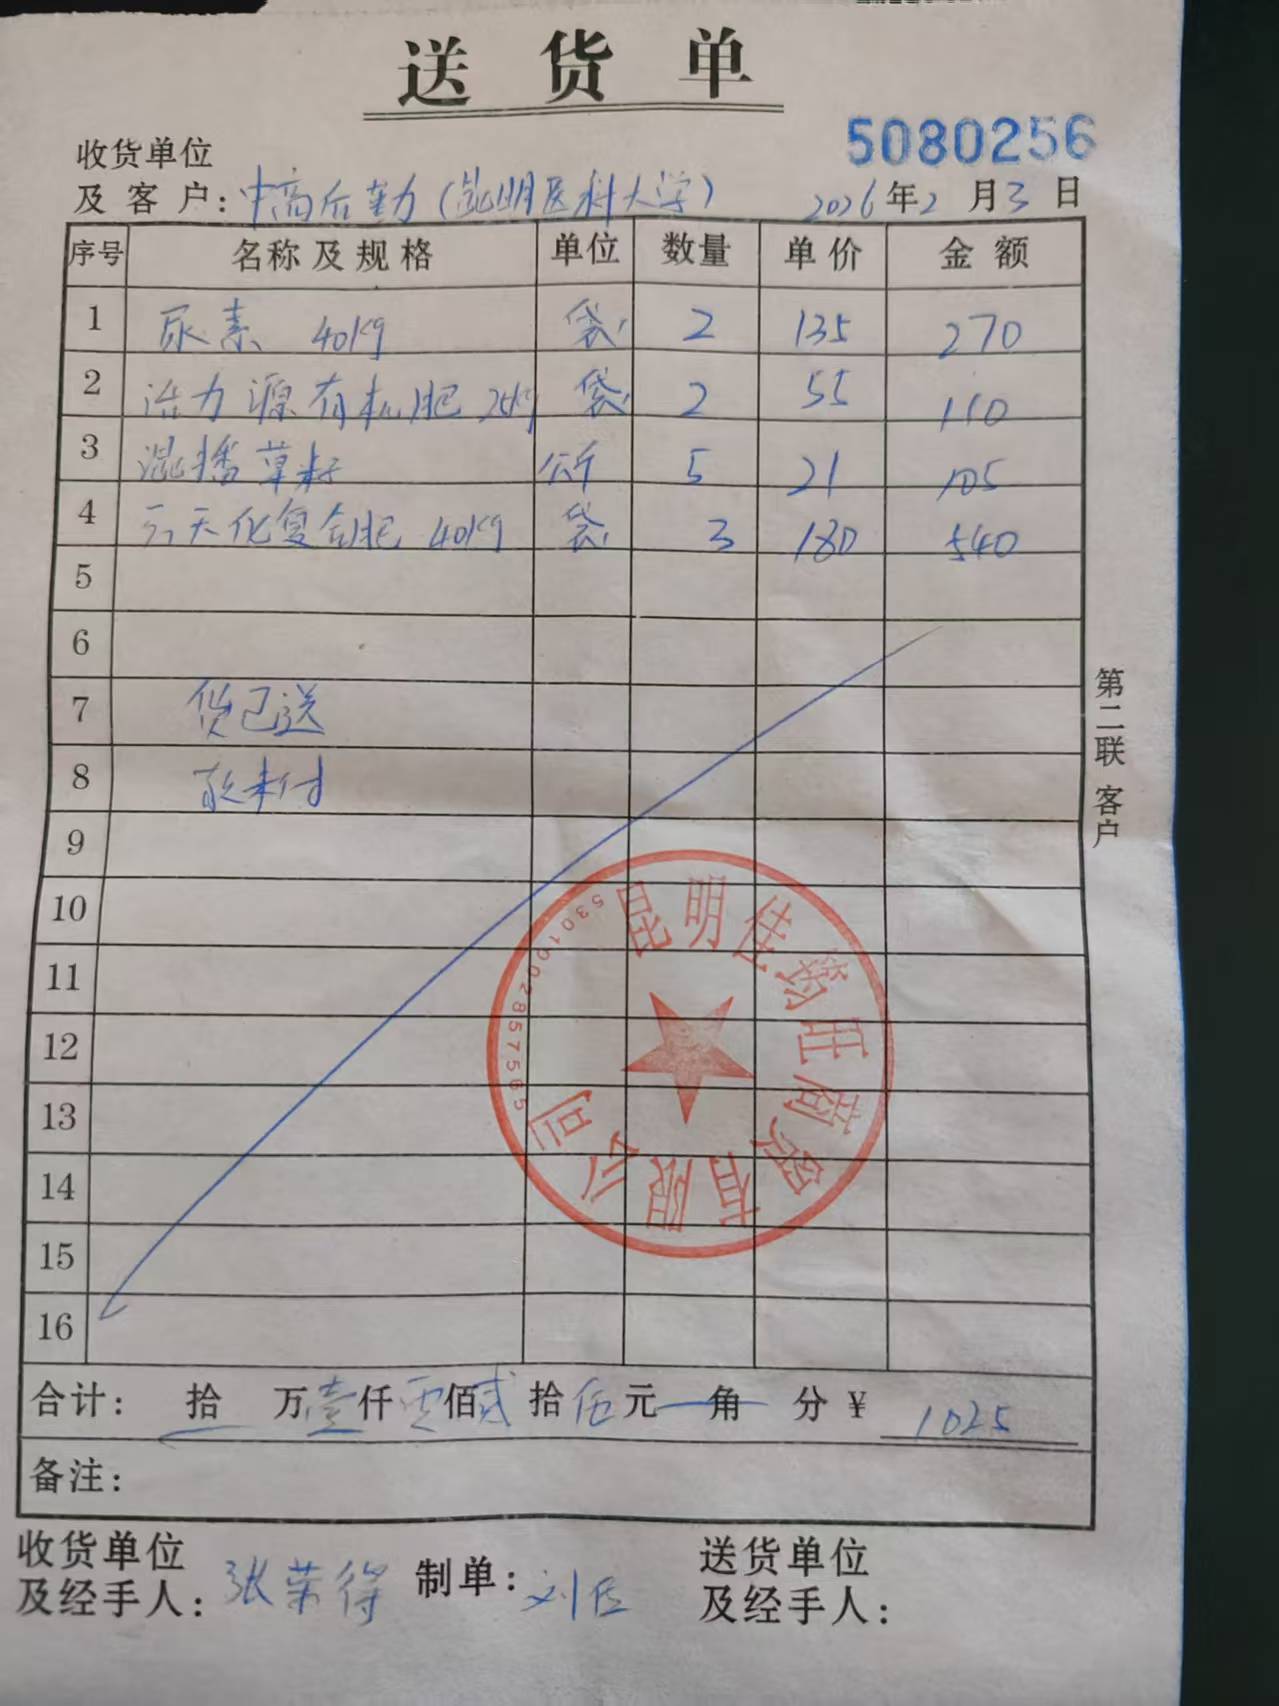 送货单
5080256
收货单位
及客户：中高后勤（昆明医科大学） 2026年2月3日
序号 名称及规格 单位 数量 单价 金额
1 尿素 40kg 袋 2 135 270
2 活力源有机肥 25kg 袋 2 55 110
3 混播草籽 公斤 5 21 105
4 云天化复合肥 40kg 袋 3 180 540
5
6
7 货已送
8 款未付
9
10
11
12
13
14
15
16
第二联 客户
昆明佳 旺商贸有限公司
5301002857565
合计： 拾 万壹仟零佰贰拾伍元 角 分 ¥ 1025
备注：
收货单位 送货单位
及经手人：张荣得 制单：刘 及经手人：